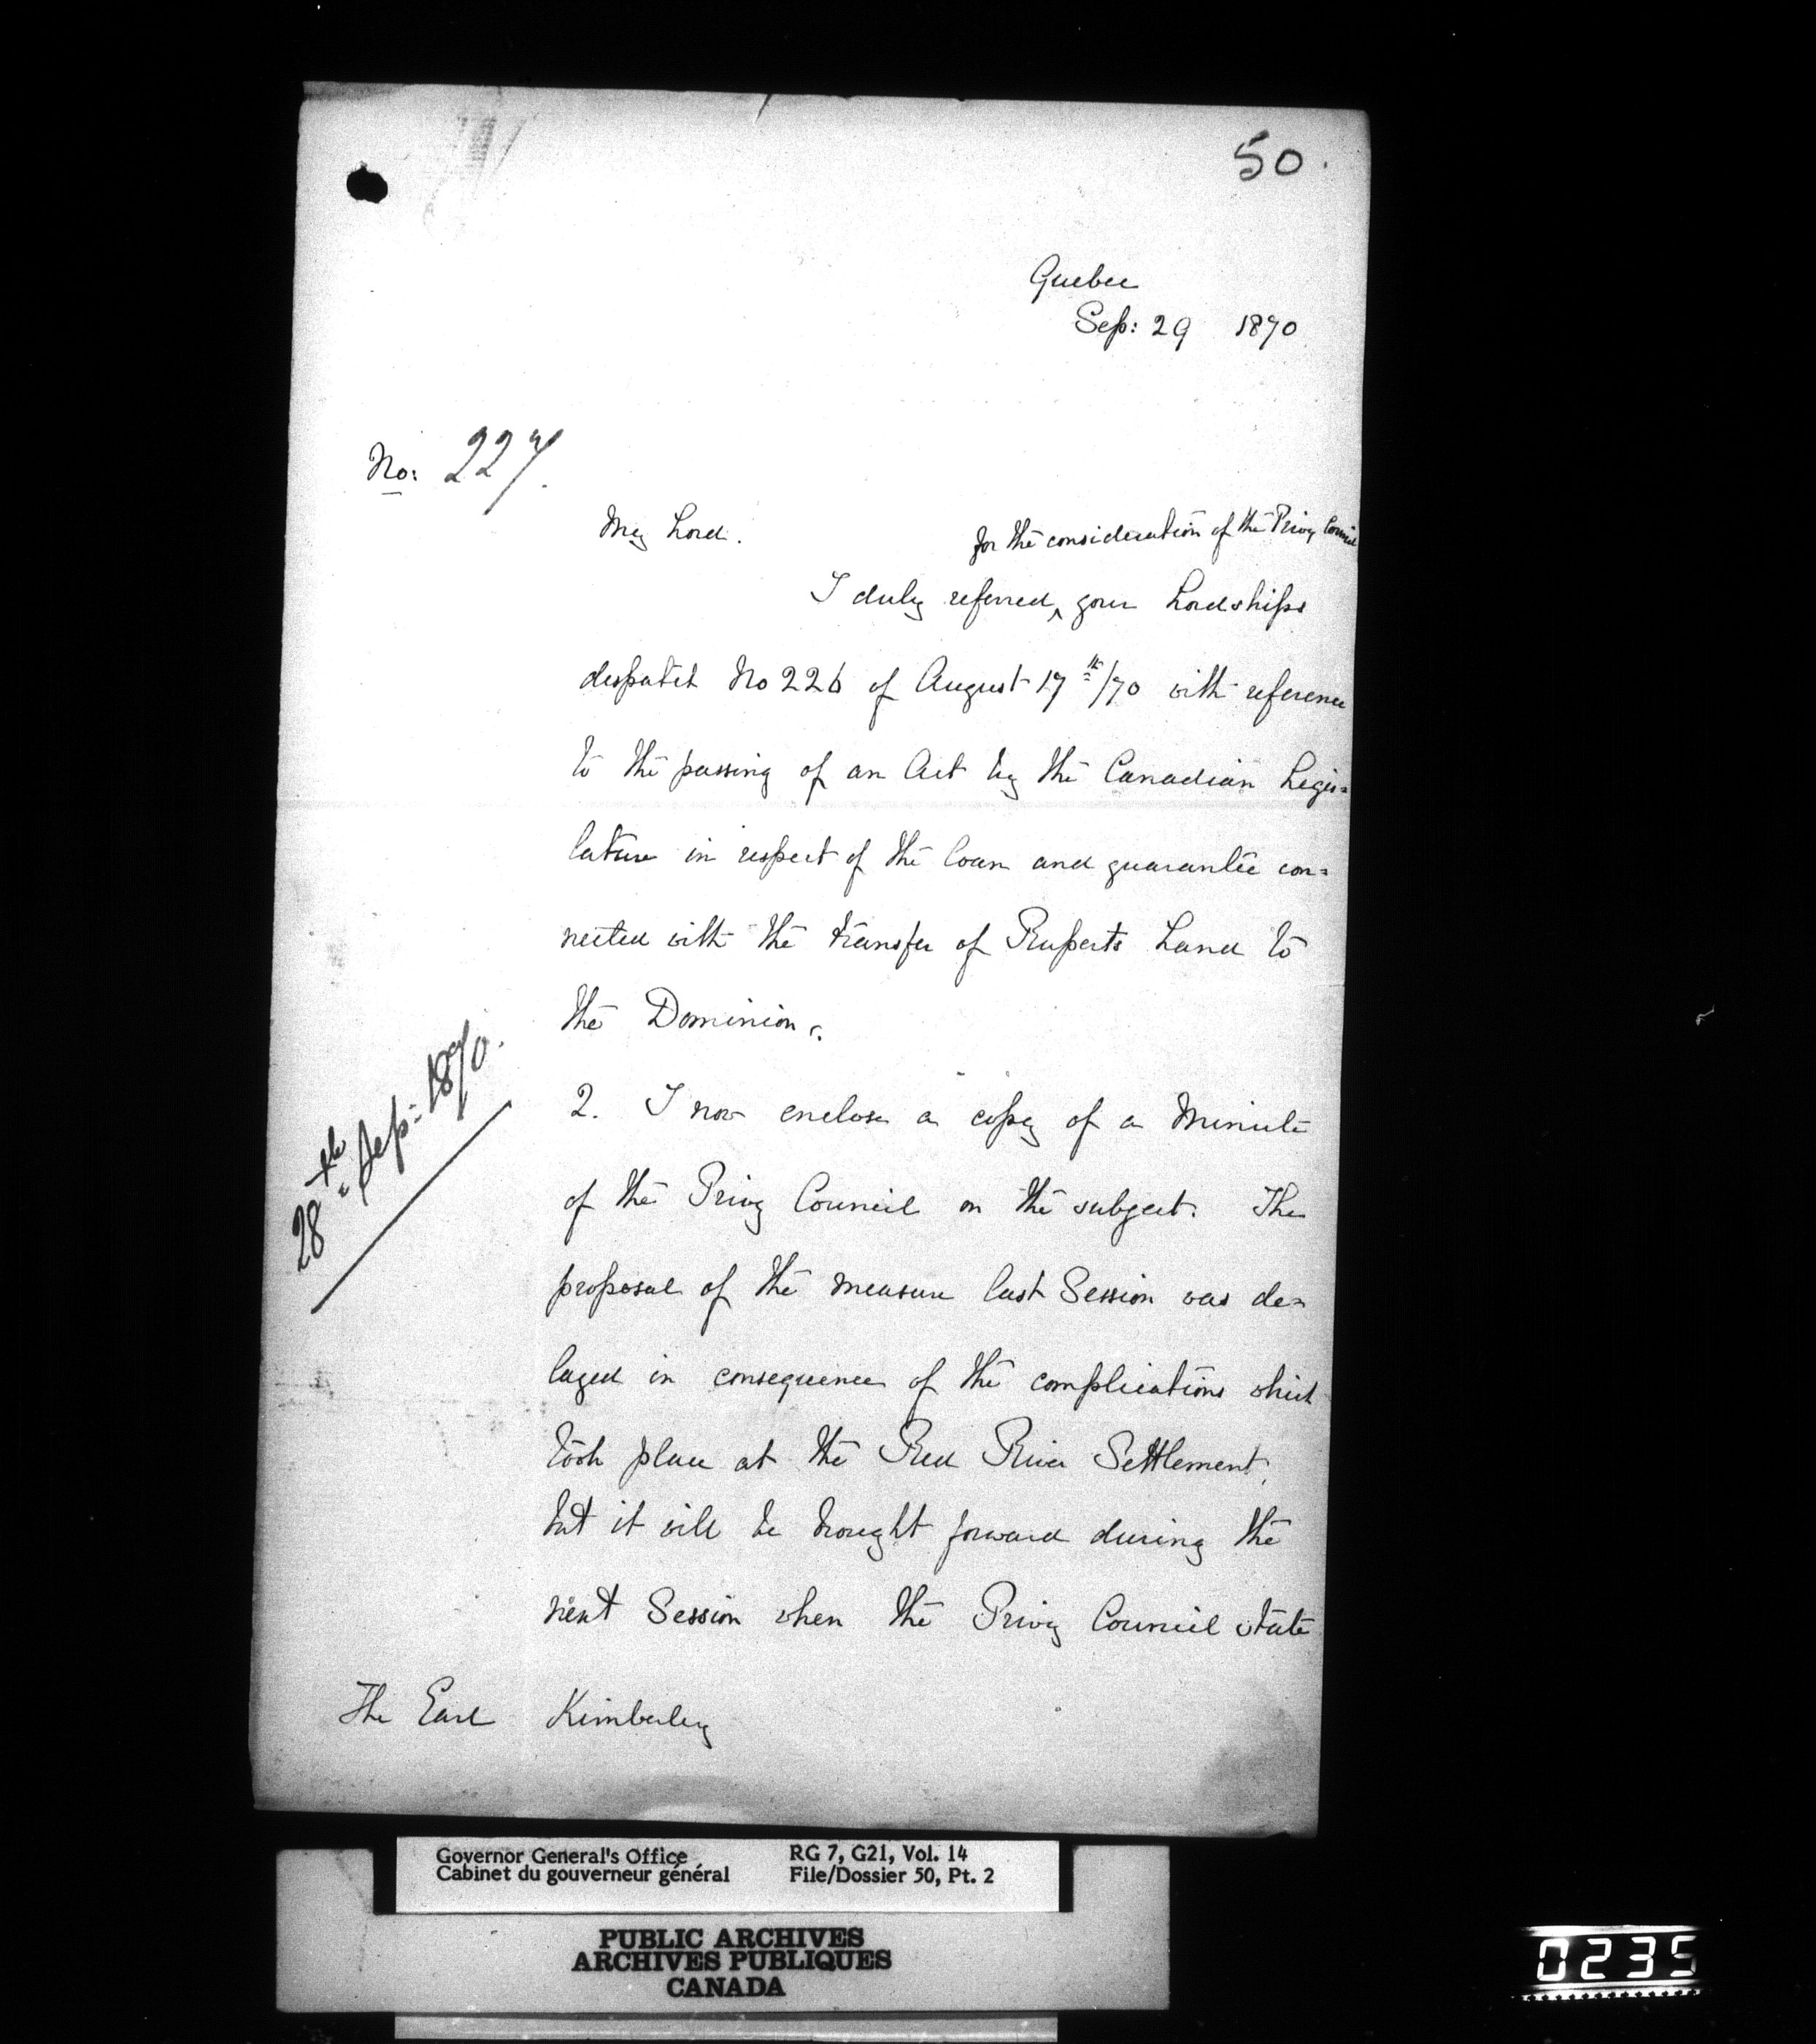 50.
Quebec
Sep: 29 1870
No: 227.
My Lord.
for the consideration of the Privy Council
I duly referred ^ your Lordships
despatch No 226 of August 17th/70 with reference
to the passing of an Act by the Canadian Legis=
lature in respect of the loan and guarantee con=
nected with the transfer of Ruperts Land to
the Dominion.
28th Sep: 1870.
2. I now enclose a copy of a Minute
of the Privy Council on the subject. The
proposal of the measure last Session was de=
layed in consequence of the complications which
took place at the Red River Settlement,
but it will be brought forward during the
next Session when the Privy Council state
The Earl Kimberley
Governor General's Office RG 7, G21, Vol. 14
Cabinet du gouverneur général File/Dossier 50, Pt. 2
PUBLIC ARCHIVES
ARCHIVES PUBLIQUES
CANADA
0235